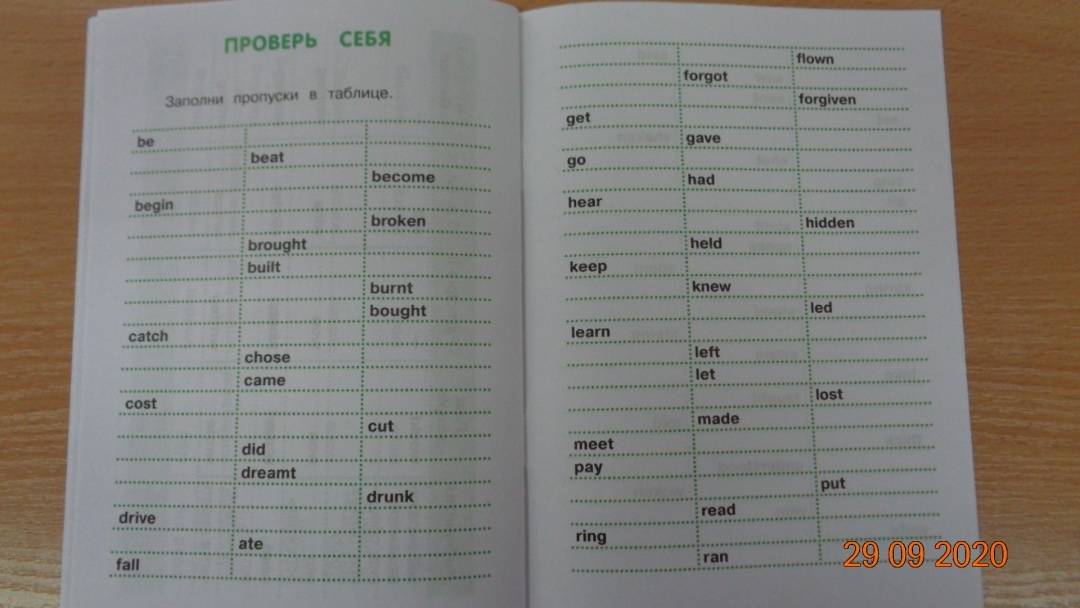 ПРОВЕРЬ СЕБЯ
Заполни пропуски в таблице.
be
beat
become
begin
broken
brought
built
burnt
bought
catch
chose
came
cost
cut
did
dreamt
drunk
drive
ate
fall
flown
forgot
forgiven
get
gave
go
had
hear
hidden
held
keep
knew
led
learn
left
let
lost
made
meet
pay
put
read
ring
ran
29 09 2020